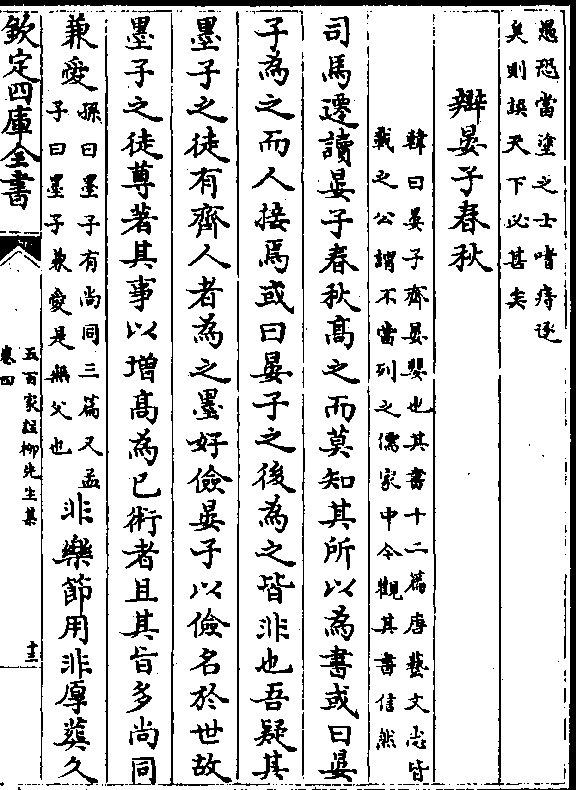 愚恐當塗之士嗜痔逐
矣則誤天下必甚矣
辯晏子春秋
韓曰晏子齊晏嬰也其書十二篇唐藝文志皆
載之公謂不當列之儒家中今觀其書信然
司馬遷讀晏子春秋髙之而莫知其所以為書或曰晏
子為之而人接焉或曰晏子之後為之皆非也吾疑其
墨子之徒有齊人者為之墨好儉晏子以儉名於世故
墨子之徒尊著其事以增髙為己術者且其旨多尚同
兼愛
孫曰墨子有尚同三篇又孟
子曰墨子兼愛是無父也
非樂節用非厚葬久
欽定四庫全書
五百家註柳先生集
卷四
十三